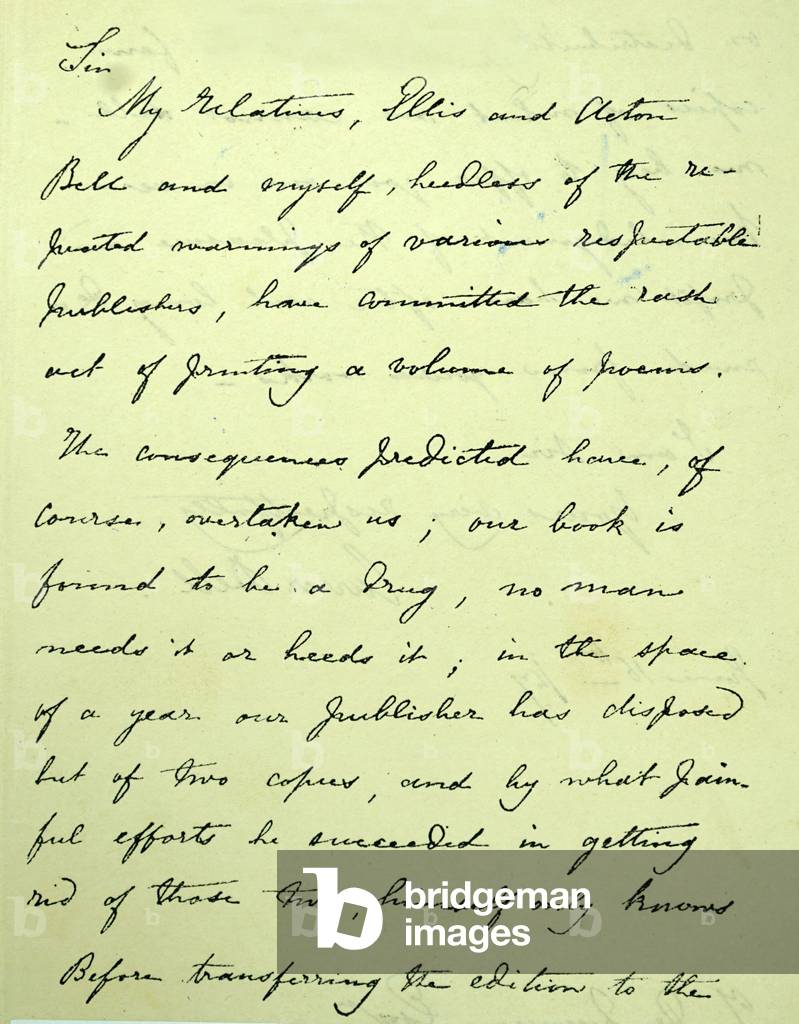 Sir
My relatives, Ellis and Acton
Bell and myself, heedless of the re-
peated warnings of various respectable
publishers, have committed the rash
act of printing a volume of poems.
The consequences predicted have, of
course, overtaken us; our book is
found to be a drug, no man
needs it or heeds it; in the space
of a year our publisher has disposed
but of two copies, and by what pain-
ful efforts he succeeded in getting
rid of those two, himself only knows
Before transferring the edition to the
bridgeman
images